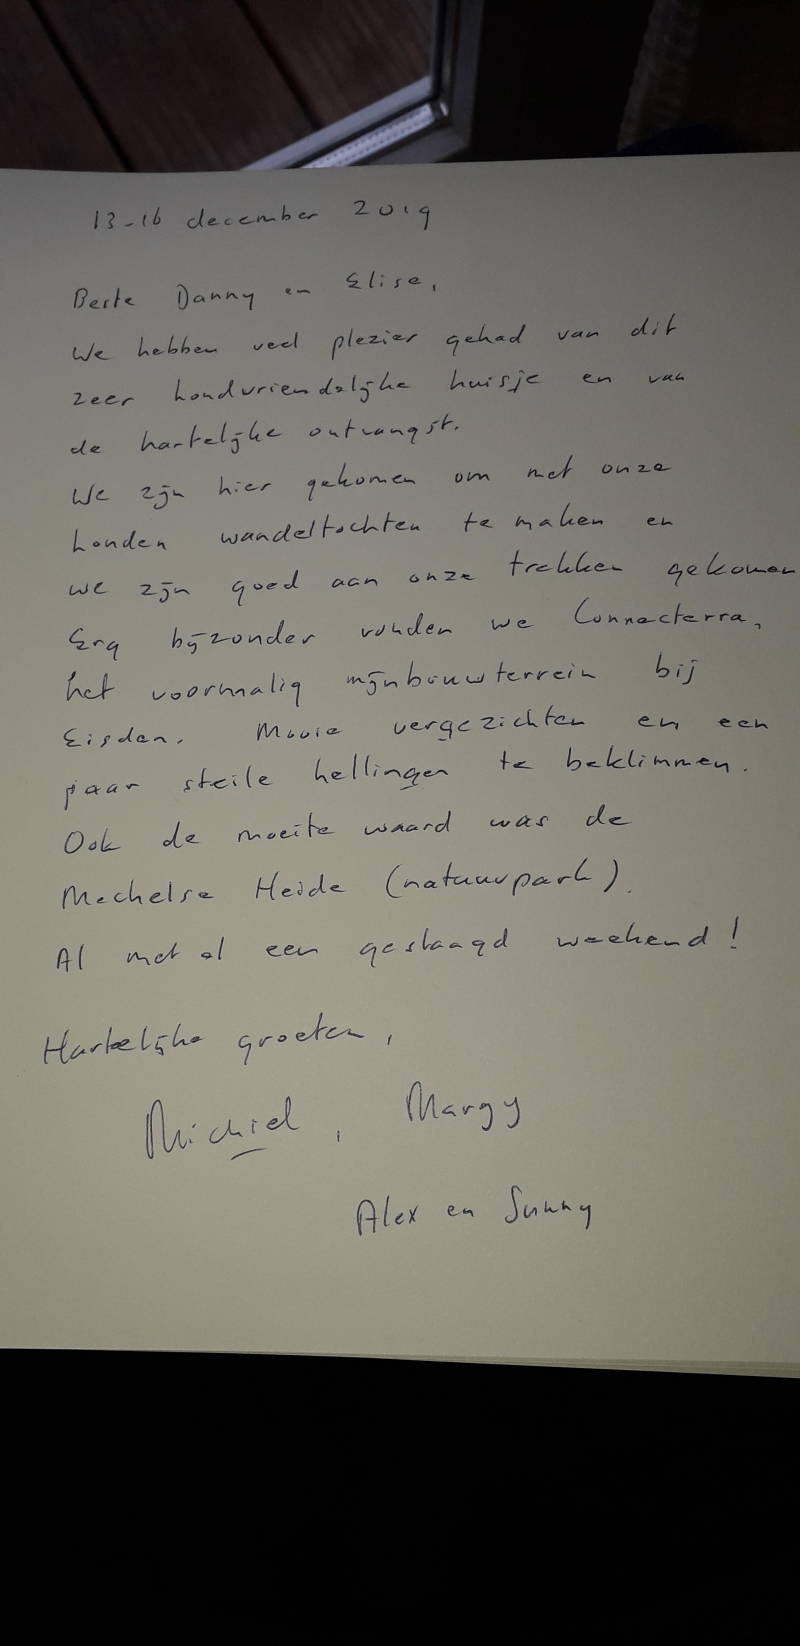 13-16 december 2019
Beste Danny en Elise,
We hebben veel plezier gehad van dit
zeer hondvriendelijke huisje en van
de hartelijke ontvangst.
We zijn hier gekomen om met onze
honden wandeltochten te maken en
we zijn goed aan onze trekken gekomen
Erg bijzonder vonden we Connecterra,
het voormalig mijnbouwterrein bij
Eisden. Mooie vergezichten en een
paar steile hellingen te beklimmen.
Ook de moeite waard was de
Mechelse Heide (natuurpark).
Al met al een geslaagd weekend!
Hartelijke groeten,
Michiel, Margy
Alex en Sunny